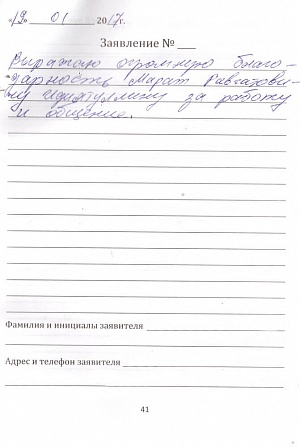 «19» 01 2017г.
Заявление № ___
Выражаю огромную благо-
дарность Марат Равгатови-
чу за работу
и общение.
Фамилия и инициалы заявителя
Адрес и телефон заявителя
41